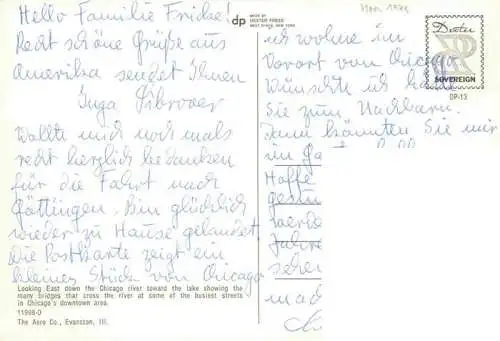 Hello Familie Fricke!
Recht schöne Grüße aus
Amerika sendet Ihnen
Inga
Wollte mich noch mals
recht herzlich bedanken
für die Fahrt nach
Göttingen. Bin glücklich
wieder zu Hause gelandet.
Die Postkarte zeigt ein
kleines Stück von Chicago
Looking East down the Chicago river toward the lake showing the
many bridges that cross the river at some of the busiest streets
in Chicago's downtown area.
11998-D
The Aero Co., Evanston, Ill.
dp
MADE BY
DEXTER PRESS
WEST NYACK, NEW YORK
Dexter
SOVEREIGN
DP-13
ich wohne im
Vorort von Chicago
wünschte ich
Sie zum Nachbarn.
Dann könnten Sie mir
im
Hoffe
werde
Jahre
sehen